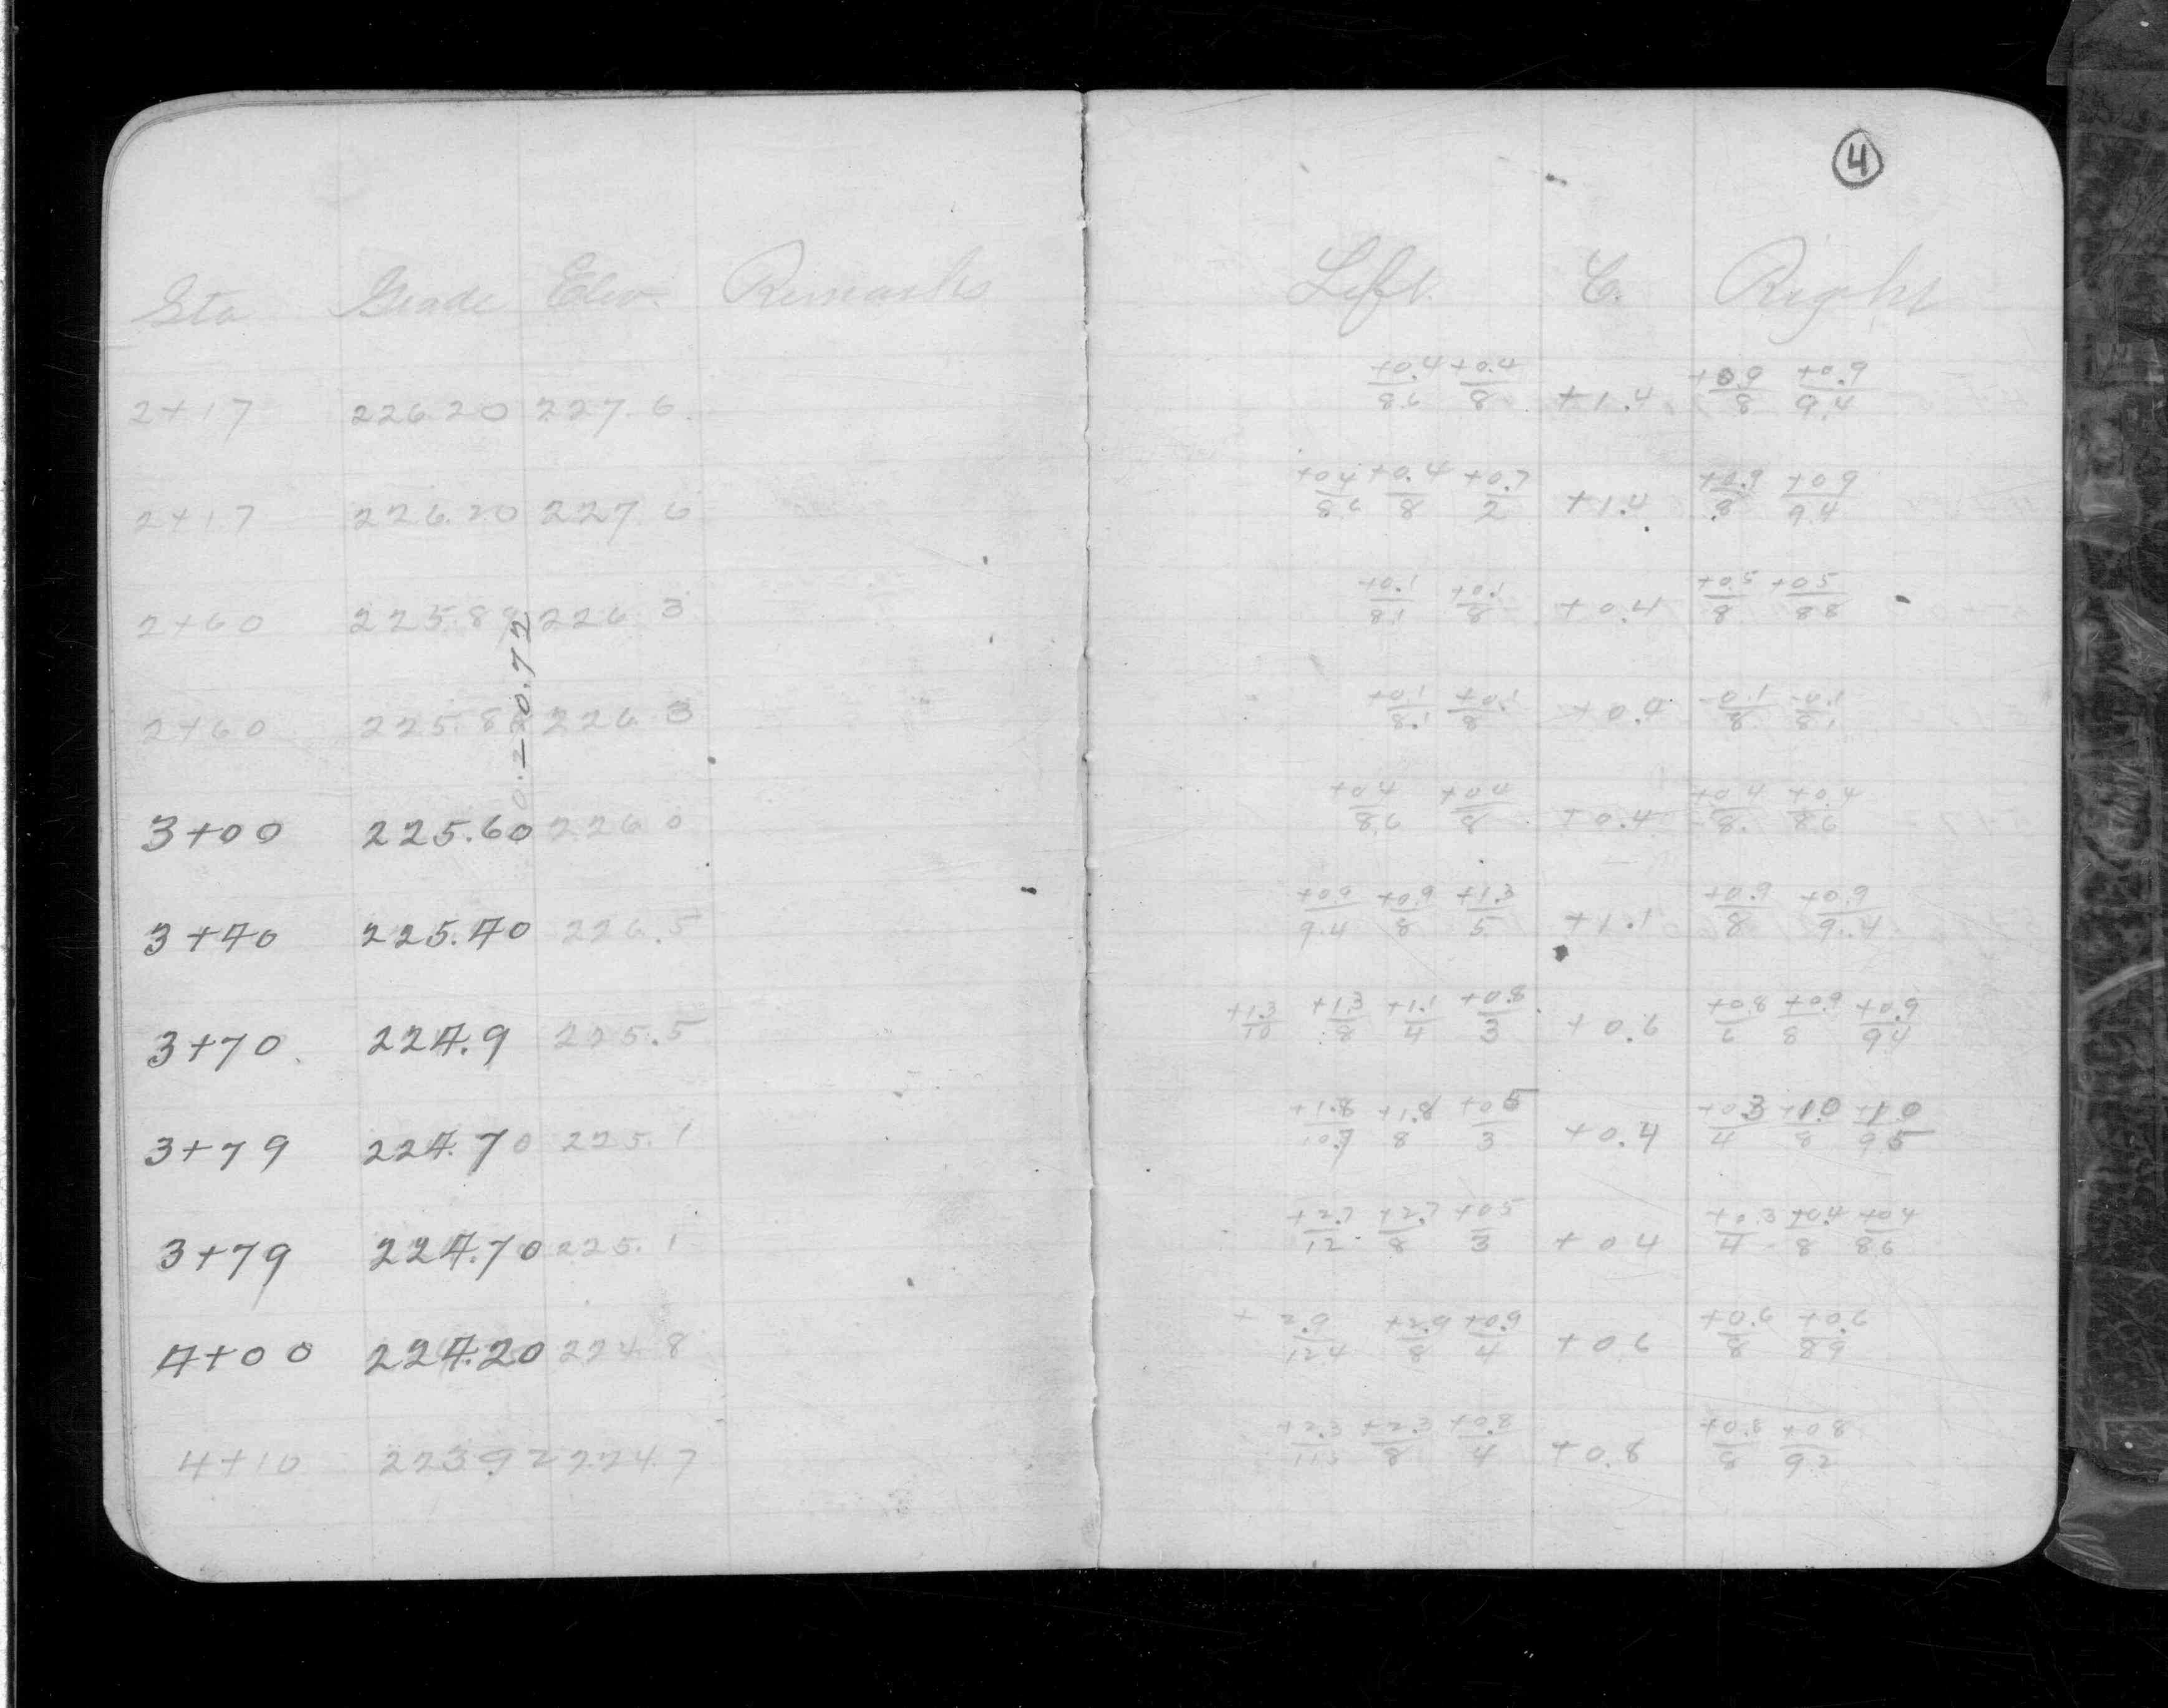 4
Sta Grade Elev. Remarks Left C. Right
2+17 226.20 227.6 +0.4/8.6 +0.4/8 +1.4 +0.9/8 +0.9/9.4
2+17 226.20 227.6 +0.4/8.6 +0.4/8 +0.7/2 +1.4 +0.9/8 +0.9/9.4
2+60 225.88 226.3 +0.1/8.1 +0.1/8 +0.4 +0.5/8 +0.5/8.8
2+60 225.88 226.3 +0.1/8.1 +0.1/8 +0.4 -0.1/8 -0.1/8.1
0.220.72
3+00 225.60 226.0 +0.4/8.6 +0.4/8 +0.4 +0.4/8 +0.4/8.6
3+40 225.40 226.5 +0.9/9.4 +0.9/8 +1.3/5 +1.1 +0.9/8 +0.9/9.4
3+70 224.9 225.5 +1.3/10 +1.3/8 +1.1/4 +0.8/3 +0.6 +0.8/6 +0.9/8 +0.9/9.4
3+79 224.70 225.1 +1.8/10.7 +1.8/8 +0.5/3 +0.4 +0.3/4 +1.0/8 +1.0/9.5
3+79 224.70 225.1 +2.7/12 +2.7/8 +0.5/3 +0.4 +0.3/4 +0.4/8 +0.4/8.6
4+00 224.20 224.8 +2.9/12.4 +2.9/8 +0.9/4 +0.6 +0.6/8 +0.6/8.9
4+10 223.92 224.7 +2.3/11.5 +2.3/8 +0.8/4 +0.8 +0.8/8 +0.8/9.2